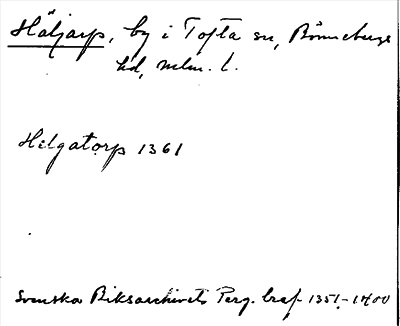 Häljarp, by i Tofta sn, Rönnebergs
hd, mlm. l.
Helgatorp 1361
Svenska Riksarchivets Perg. bref 1351-1400